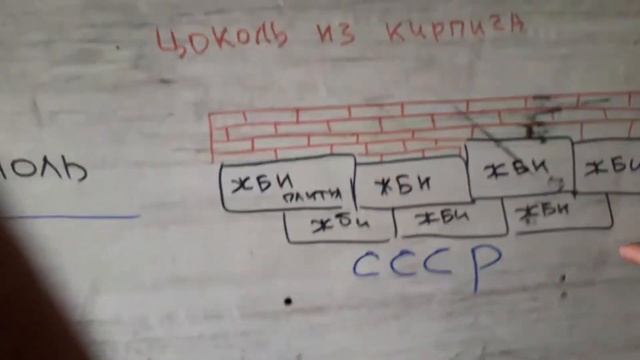 ЦОКОЛЬ ИЗ КИРПИЧА
ОЛЬ
ЖБИ ПЛИТЫ ЖБИ ЖБИ ЖБИ
ЖБИ ЖБИ ЖБИ
СССР